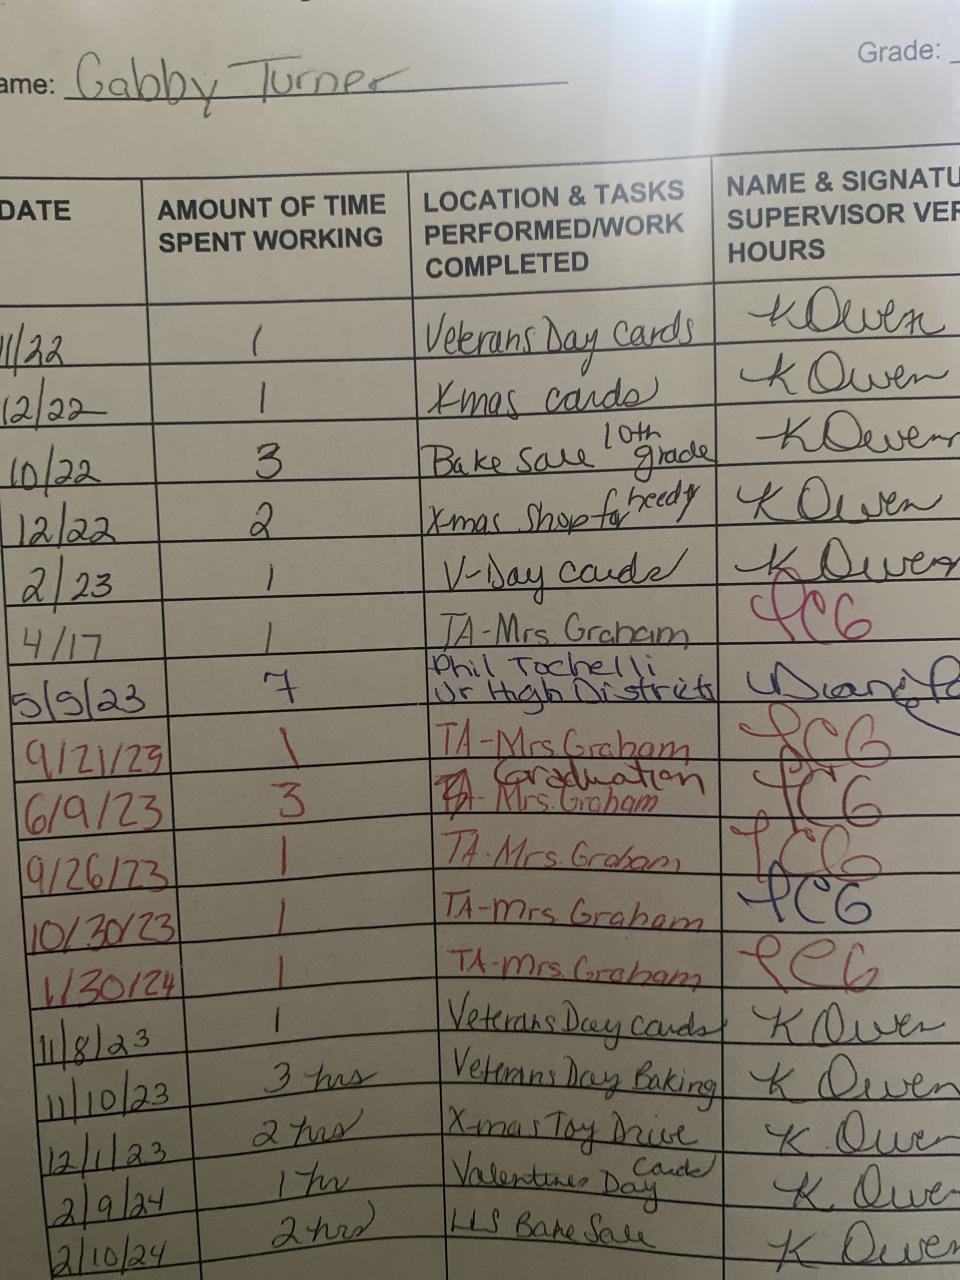 ame: Gabby Turner
Grade:
DATE
AMOUNT OF TIME
SPENT WORKING
LOCATION & TASKS
PERFORMED/WORK
COMPLETED
NAME & SIGNATU
SUPERVISOR VER
HOURS
11/22 1 Veterans Day Cards K Owen
12/22 1 X-mas cards K Owen
10/22 3 Bake Sale 10th grade K Owen
12/22 2 X-mas Shop for needy K Owen
2/23 1 V-Day cards K Owen
4/17 1 TA-Mrs. Graham
5/9/23 7 Phil Tochelli
Jr High Districts
9/21/23 1 TA-Mrs. Graham
6/9/23 3 Graduation
Mrs. Graham
9/26/23 1 TA-Mrs. Graham
10/30/23 1 TA-Mrs. Graham
1/30/24 1 TA-Mrs. Graham
11/8/23 1 Veterans Day cards K Owen
11/10/23 3 hrs Veterans Day Baking K Owen
12/1/23 2 hrs X-mas Toy Drive K. Owe
2/9/24 1 hr Valentines Day Cards K. Owe
2/10/24 2 hrs Bake Sale K Owen